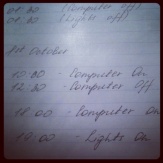 Computer off)
01.30 (Lights off)
1st October
10.30 - Computer On
12.30 - Computer Off
18.00 - Computer On
19.00 - Lights On